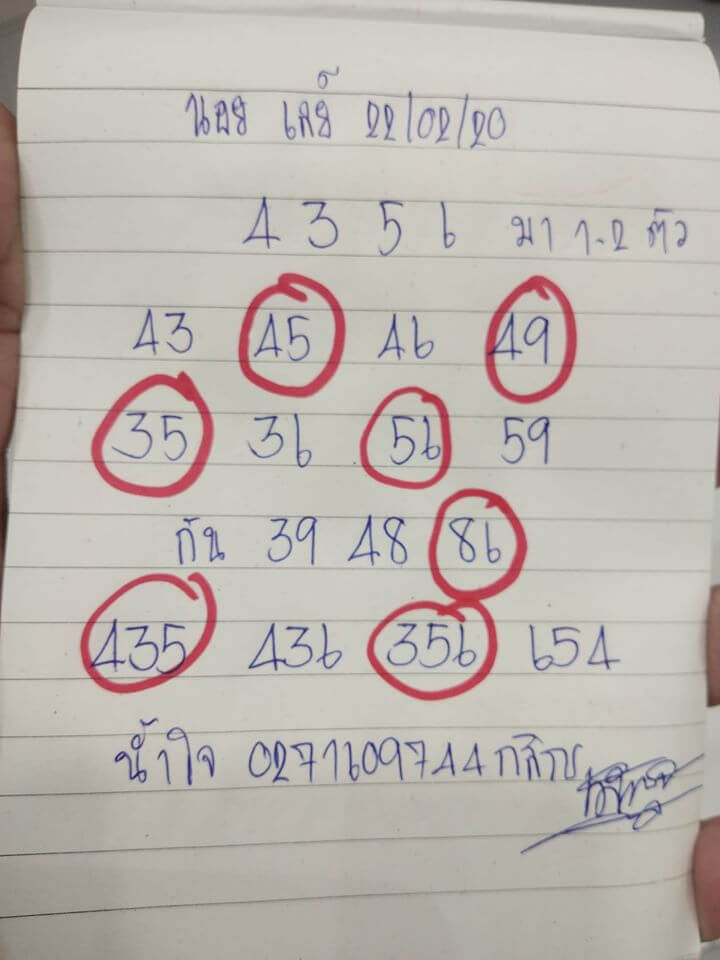 นอย เลย์ 22/02/20
4 3 5 6 มา 1-2 ตัว
43 45 46 49
35 36 56 59
กัน 39 48 86
435 436 356 654
น้ำใจ 0271609744 กสิกร